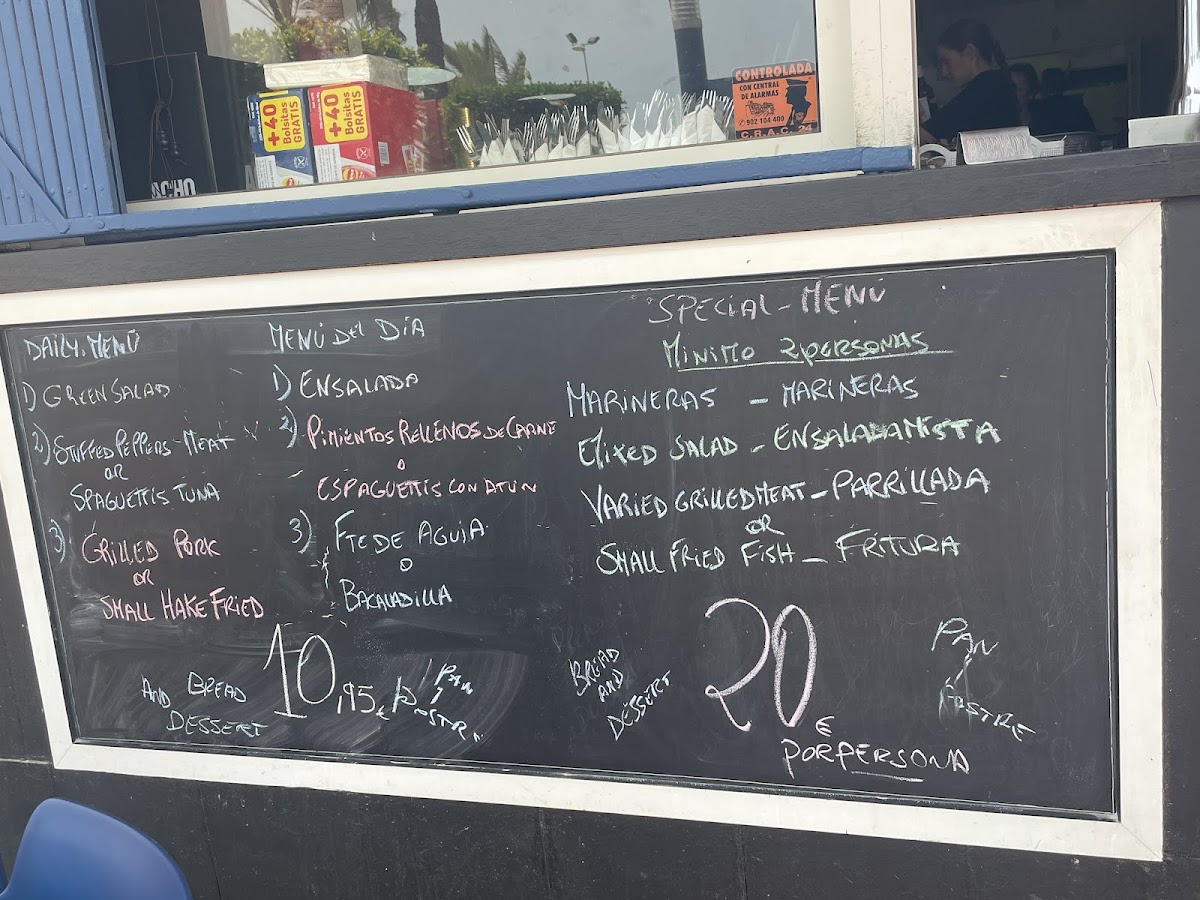 +40
Bolsitas
GRATIS
+40
Bolsitas
GRATIS
CONTROLADA
CON CENTRAL
DE ALARMAS
902 104 400
C.R.A.C. 24
DAILY. MENÚ
1) GREEN SALAD
2) STUFFED PEPPERS - MEAT
OR
SPAGUETTIS TUNA
3) GRILLED PORK
OR
SMALL HAKE FRIED
AND BREAD
DESSERT
MENÚ DEL DÍA
1) ENSALADA
2) PIMIENTOS RELLENOS DE CARNE
O
ESPAGUETTIS CON ATUN
3) FTE DE AGUJA
O
BACALADILLA
10,95€
PAN
SPECIAL - MENÚ
MINIMO 2 PERSONAS
MARINERAS - MARINERAS
MIXED SALAD - ENSALADA MISTA
VARIED GRILLED MEAT - PARRILLADA
OR
SMALL FRIED FISH - FRITURA
BREAD
AND
DESSERT
20
€
POR PERSONA
PAN
Y
POSTRE